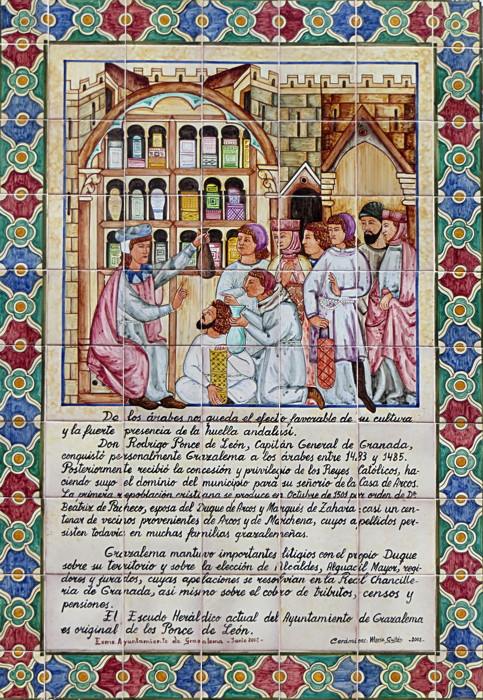 De los árabes no queda el efecto favorable de su cultura
y la fuerte presencia de la huella andalusí.
Don Rodrigo Ponce de León, Capitán General de Granada,
conquistó personalmente Grazalema a los árabes entre 1483 y 1485.
Posteriormente recibió la concesión y privilegio de los Reyes Católicos, ha-
ciendo suyo el dominio del municipio para su señorío de la Casa de Arcos.
La primera repoblación cristiana se produce en Octubre de 1501 por orden de Dª
Beatriz de Pacheco, esposa del Duque de Arcos y Marqués de Zahara: casi un cen-
tenar de vecinos provenientes de Arcos y de Marchena, cuyos apellidos per-
sisten todavía en muchas familias grazalemeñas.
Grazalema mantuvo importantes litigios con el propio Duque
sobre su territorio y sobre la elección de Alcaldes, Alguacil Mayor, regi-
dores y jurados, cuyas apelaciones se resolvían en la Real Chancille-
ría de Granada, así mismo sobre el cobro de tributos, censos y
pensiones.
El Escudo Heráldico actual del Ayuntamiento de Grazalema
es original de los Ponce de León.
Exmo. Ayuntamiento de Grazalema - Junio 2002 - Cerámicas: Mario Guillén - 2002 -